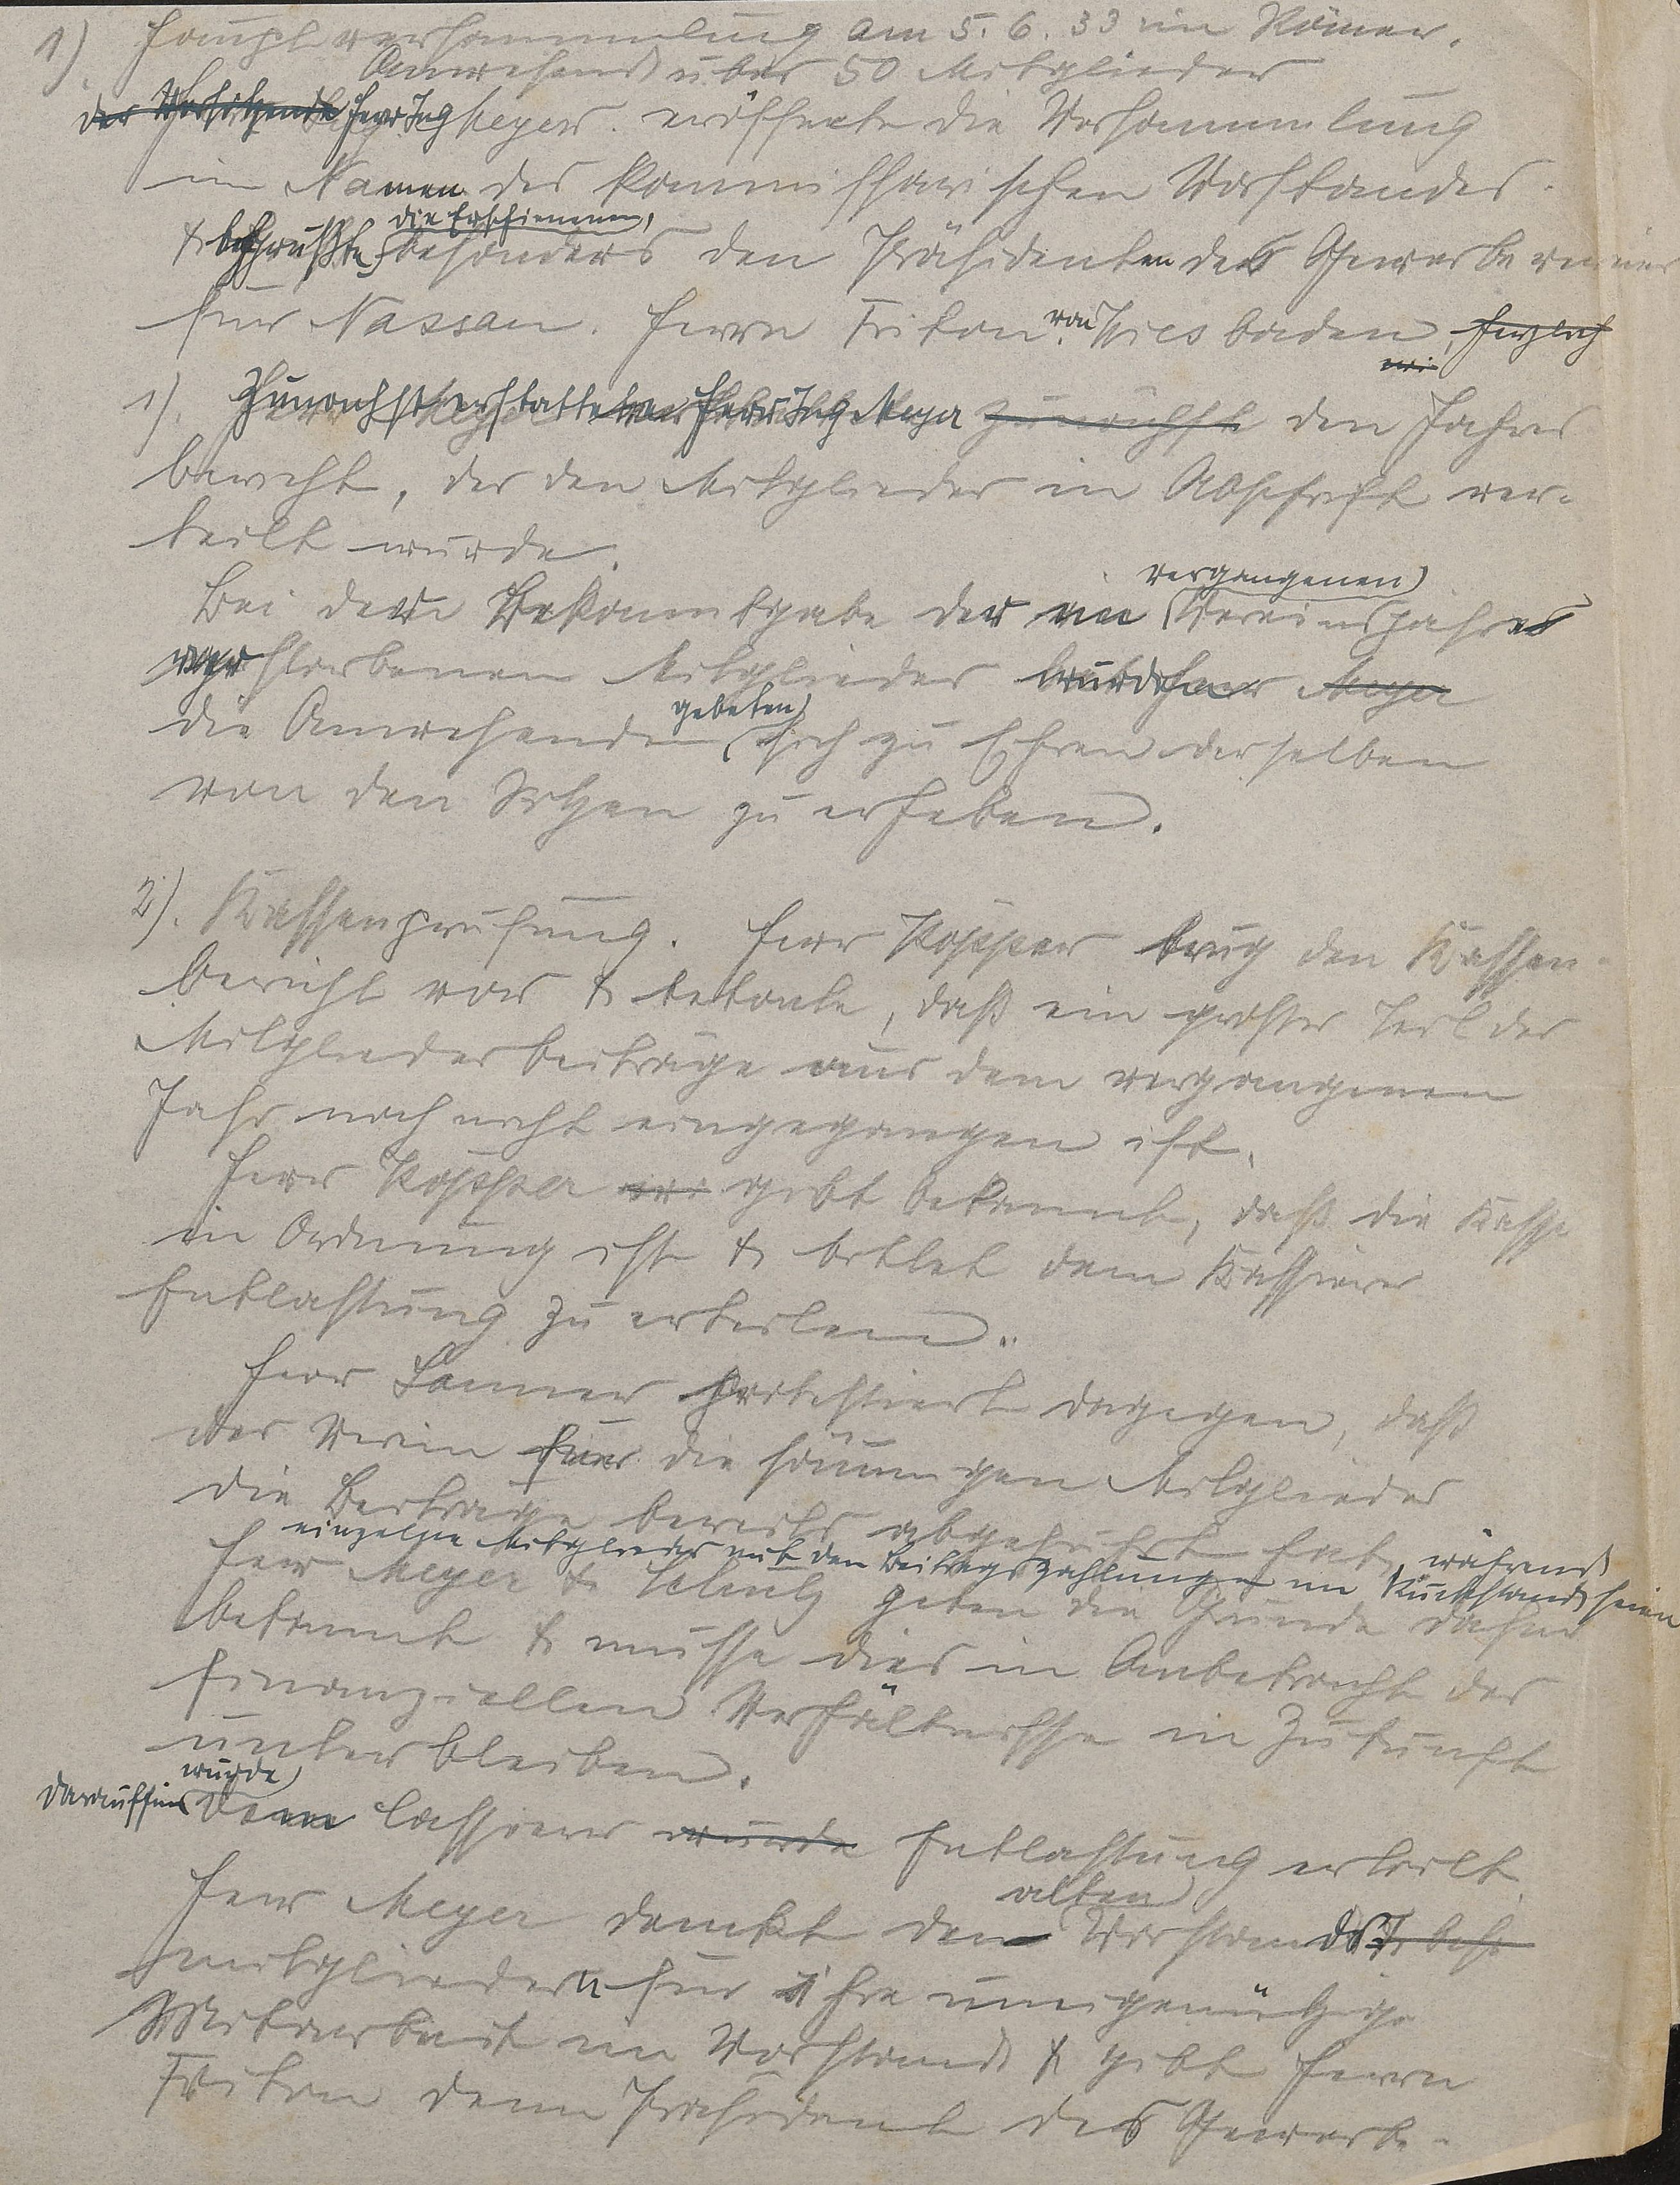 1). Hauptversammlung am 5.6.33 im Römer.
Anwesend über 50 Mitglieder
der Vorsitzende Herr Ing Meyer. eröffnete die Versammlung
im Namen des kommissarischen Vorstandes.
& begrüßte die Erschienenen, besonders den Präsidenten des Gewerbevereins
für Nassau. Herrn Friton von Wiesbaden, herzlich
1). Zunächst erstattete Herr Ing Meyer zunächst den Jahres
bericht, der den Mitglieder in Abschrift ver-
teilt wurde.
Bei der Bekanntgabe der im vergangenen Vereinsjahre
verstorbenen Mitglieder wurden Meyer
die Anwesenden gebeten sich zu Ehren derselben
von den Sitzen zu erheben.
2). Kassenprüfung. Herr Köpper trug den Kassen-
bericht vor & betonte, daß ein großer Teil der
Mitgliederbeiträge aus dem vergangenen
Jahr noch nicht eingegangen ist.
Herr Köpper gibt bekannt, daß die Kasse
in Ordnung ist & bittet dem Kassierer
Entlastung zu erteilen.
Herr Sanner protestiert dagegen, daß
der Verein für die säumigen Mitglieder
die Beiträge bereits abgeführt hat, während
einzelne Mitglieder mit den Beitragszahlungen im Rückstand seien
Herr Meyer & Schulz geben die Gründe dafür
bekannt & müsse dies in Anbetracht der
finanziellen Verhältnisse in Zukunft
unterbleiben.
Daraufhin wurde dem Cassierer wurde Entlastung erteilt.
Herr Meyer dankt den alten Vorstands
mitgliedern für ihre uneigennützige
Mitarbeit im Vorstand & gibt Herrn
Friton dem Präsident des Gewerbe-